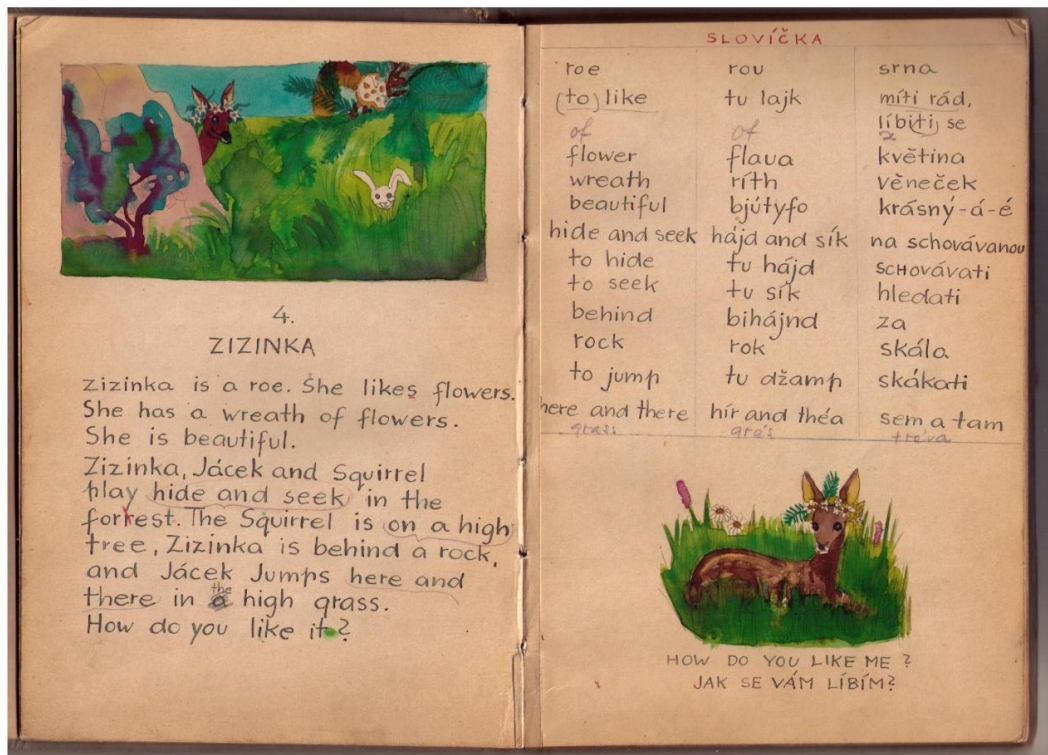 4.
ZIZINKA
Zizinka is a roe. She likes flowers.
She has a wreath of flowers.
She is beautiful.
Zizinka, Jácek and Squirrel
play hide and seek in the
forrest. The Squirrel is on a high
tree, Zizinka is behind a rock,
and Jácek Jumps here and
there in the high grass.
How do you like it?
SLOVÍČKA
roe rou srna
(to) like tu lajk míti rád,
líbiti se
of of
flower flaua květina
wreath ríth věneček
beautiful bjútyfo krásný-á-é
hide and seek hájd and sík na schovávanou
to hide tu hájd SCHOVÁVATI
to seek tu sík hledati
behind bihájnd za
rock rok skála
to jump tu džamp skákati
here and there hír and théa sem a tam
grass grás tráva
HOW DO YOU LIKE ME ?
JAK SE VÁM LÍBÍM?